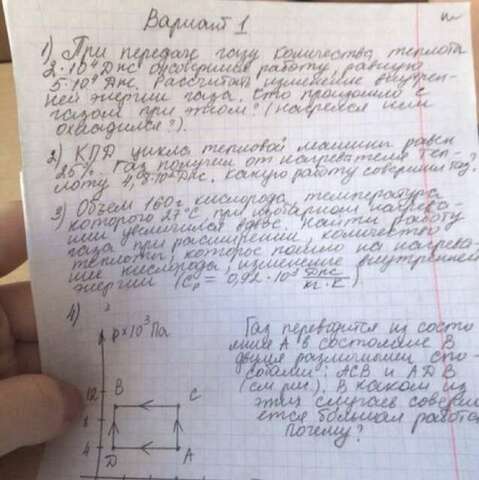 Вариант 1
1) При передаче газу количества теплота
2·10⁴ Дж он совершил работу, равную
5·10⁴ Дж. Рассчитай изменение внутрен-
ней энергии газа. Что произошло с
газом при этом? (нагрелся или
охладился?).
2) КПД цикла тепловой машины равен
25%. Газ получил от нагревателя теп-
лоту Дж. Какую работу совершил газ?
3) Объем 160 г. кислорода, температура
которого 27°C при изобарном нагрева-
нии увеличился вдвое. Найти работу
газа при расширении, количество
теплоты, которое пошло на нагрева-
ние кислорода, изменение внутренней
энергии (Cp = 0,92·10³ Дж/кг·К)
4)
p×10³ Па
12
8
4
B
C
D
A
Газ переводится из состо
яние A в состояние B
двумя различными спо-
собами: ACB и ADB
(см рис). В каком из
этих случаев соверш
ается большая работа
Почему?